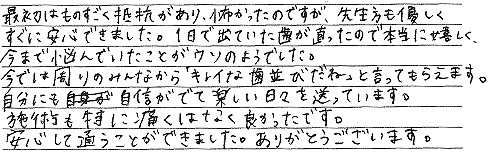 最初はものすごく抵抗があり、怖かったのですが、先生方も優しく
すぐに安心できました。1日で出ていた歯が直ったので本当に嬉しく、
今まで悩んでいたことがウソのようでした。
今では周りのみんなから「キレイな歯並びだね」と言ってもらえます。
自分にも自信がでて楽しい日々を送っています。
施術も特に痛くはなく良かったです。
安心して通うことができました。ありがとうございます。